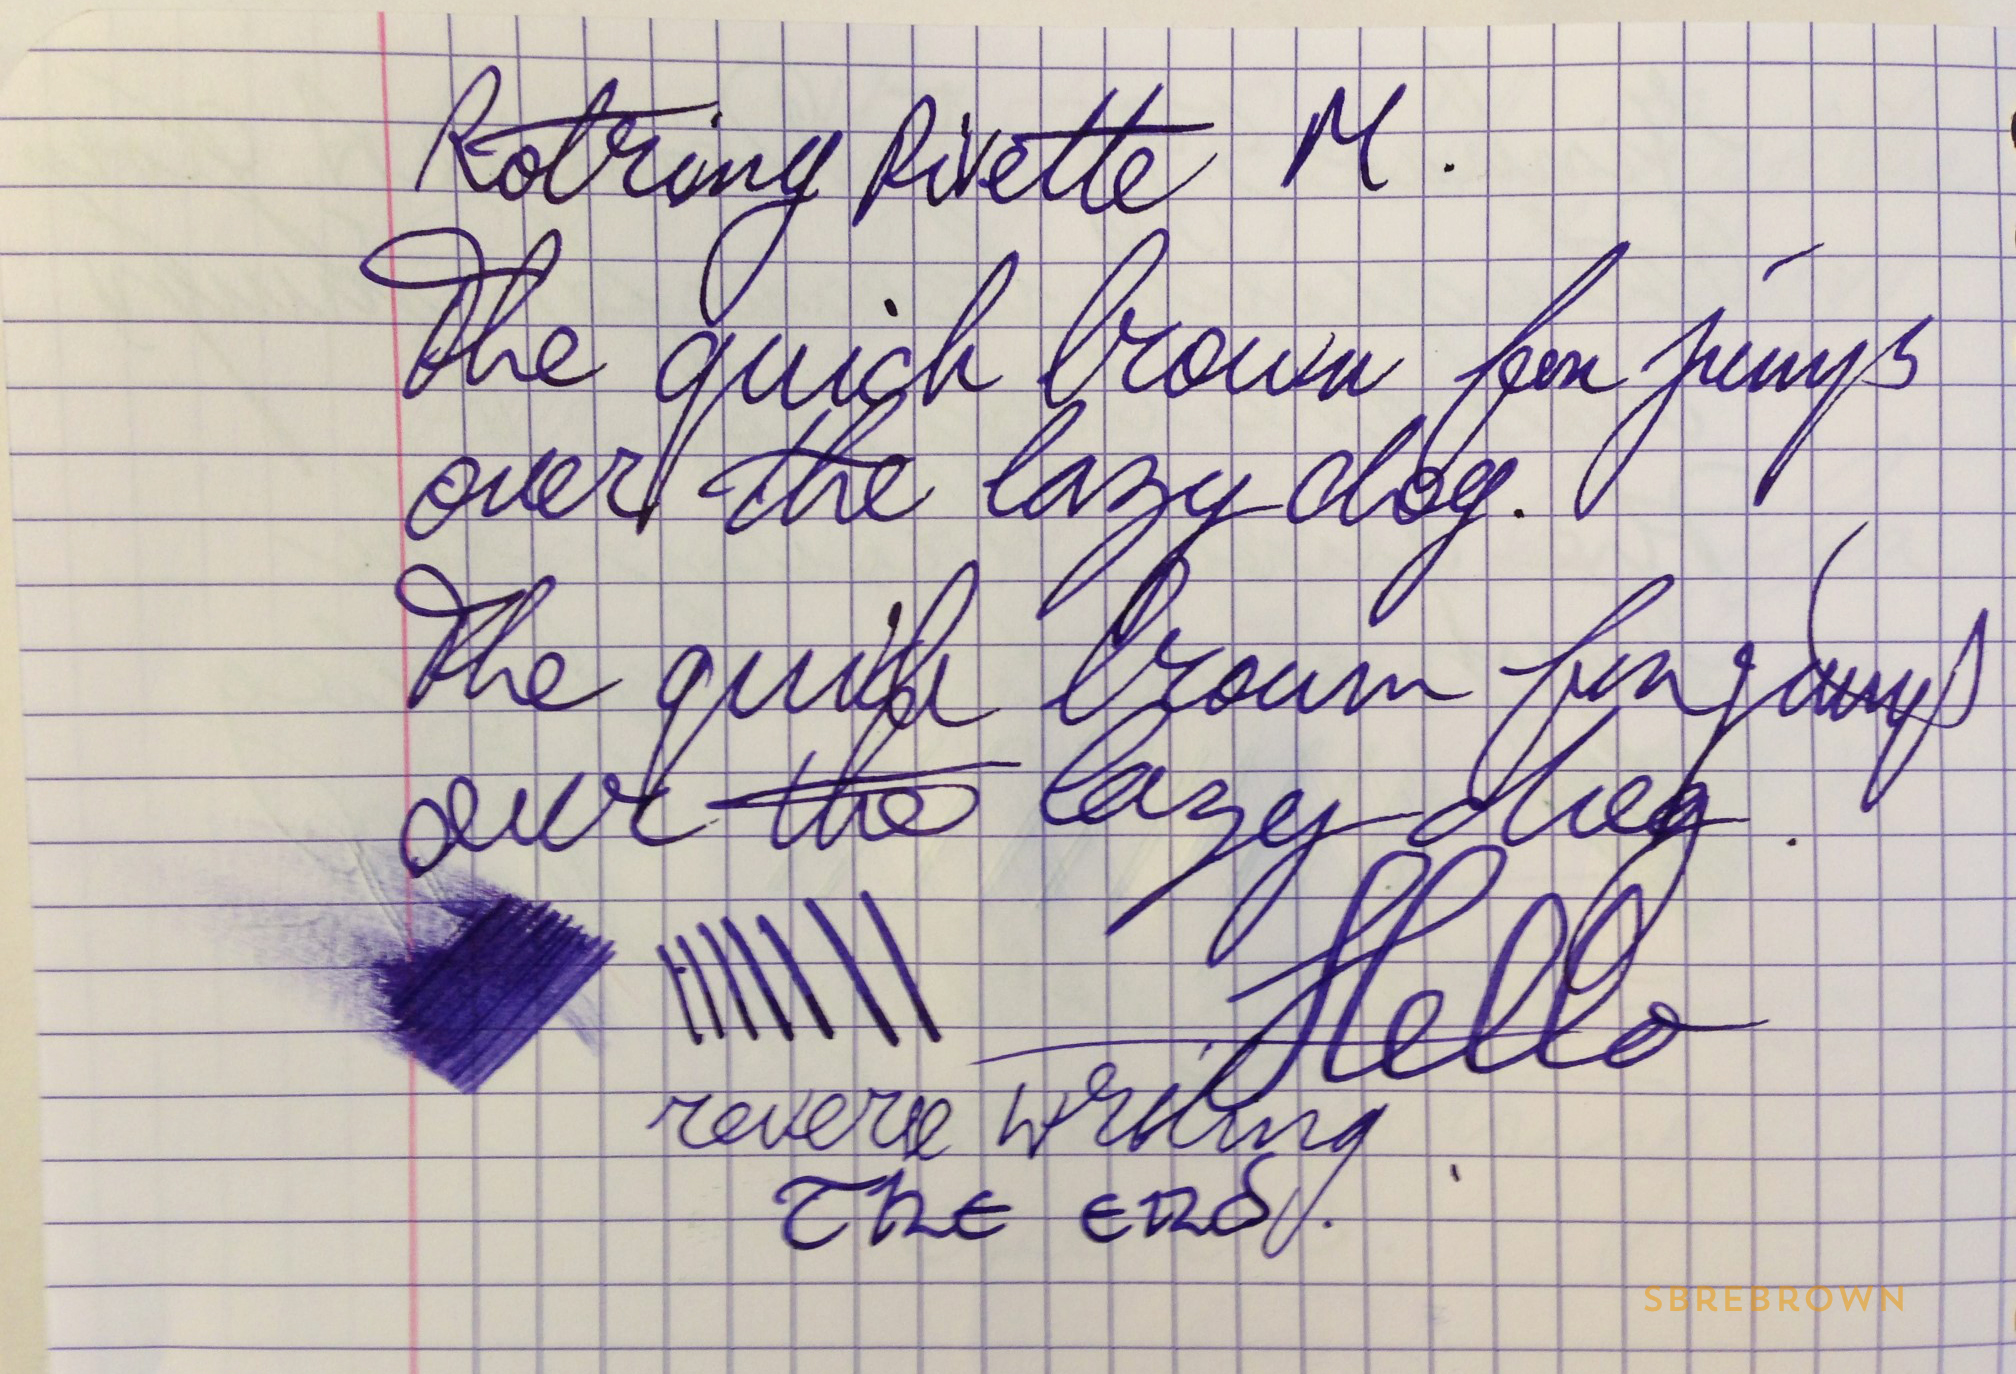 Rotring Rivette M.
The quick brown fox jumps
over the lazy dog.
The quick brown fox jumps
over the lazy dog.
Hello
reverse writing.
The end.
SBREBROWN